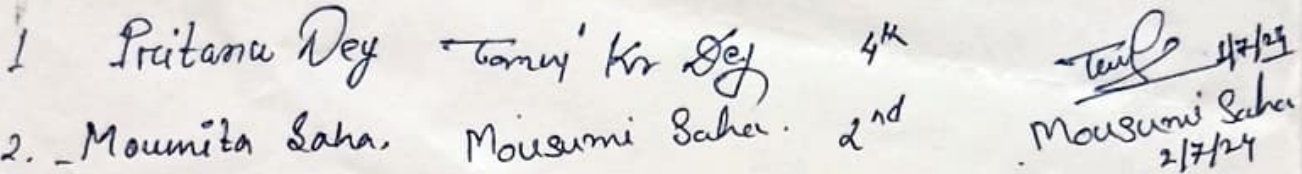 1 Pritana Dey Kr Dey 4th 2/7/24
2. Moumita Saha. Mousumi Saha. 2nd Mousumi Saha
2/7/24